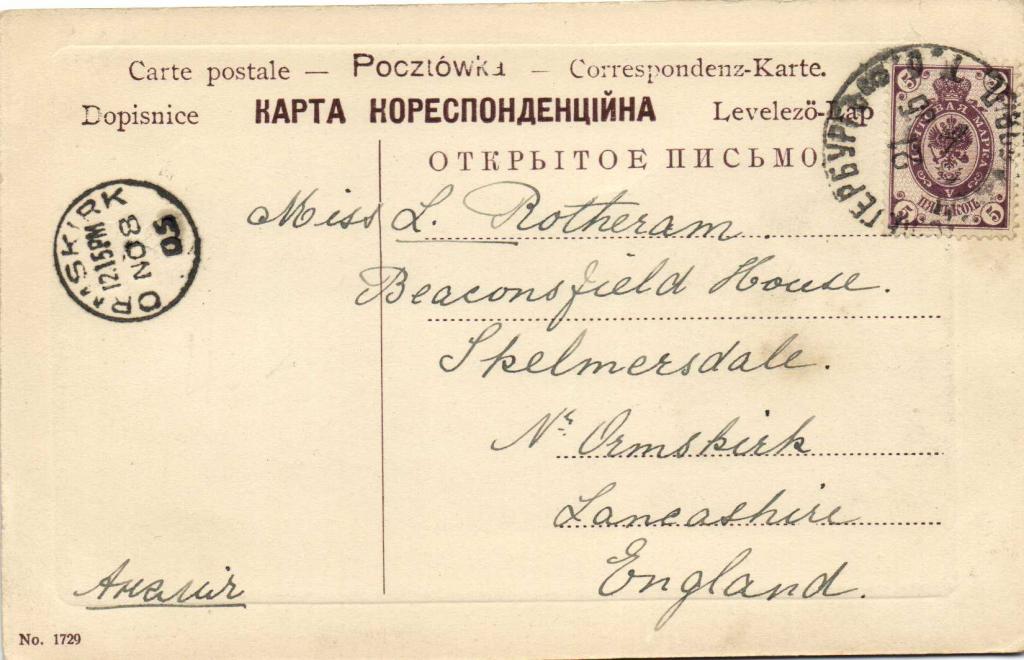 Carte postale — Pocztówka — Correspondenz-Karte.
Dopisnice КАРТА КОРЕСПОНДЕНЦІЙНА Levelezö-Lap
ОТКРЫТОЕ ПИСЬМО
5 5
ПОЧТОВАЯ МАРКА
ПЯТЬ КОП.
5 5
ORMSKIRK
12.15PM
NO 8
05
Miss L. Rotheram.
Beaconsfield House.
Skelmersdale.
Nr. Ormskirk
Lancashire
England.
Англія
No. 1729